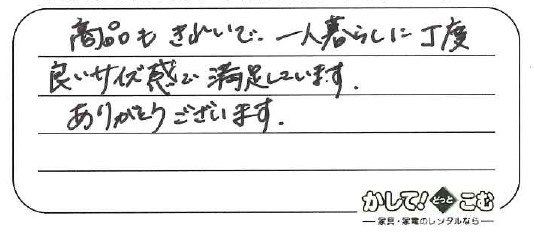 商品もきれいで、一人暮らしに丁度
良いサイズ感で満足しています.
ありがとうございます.
かして!どっとこむ
家具・家電のレンタルなら